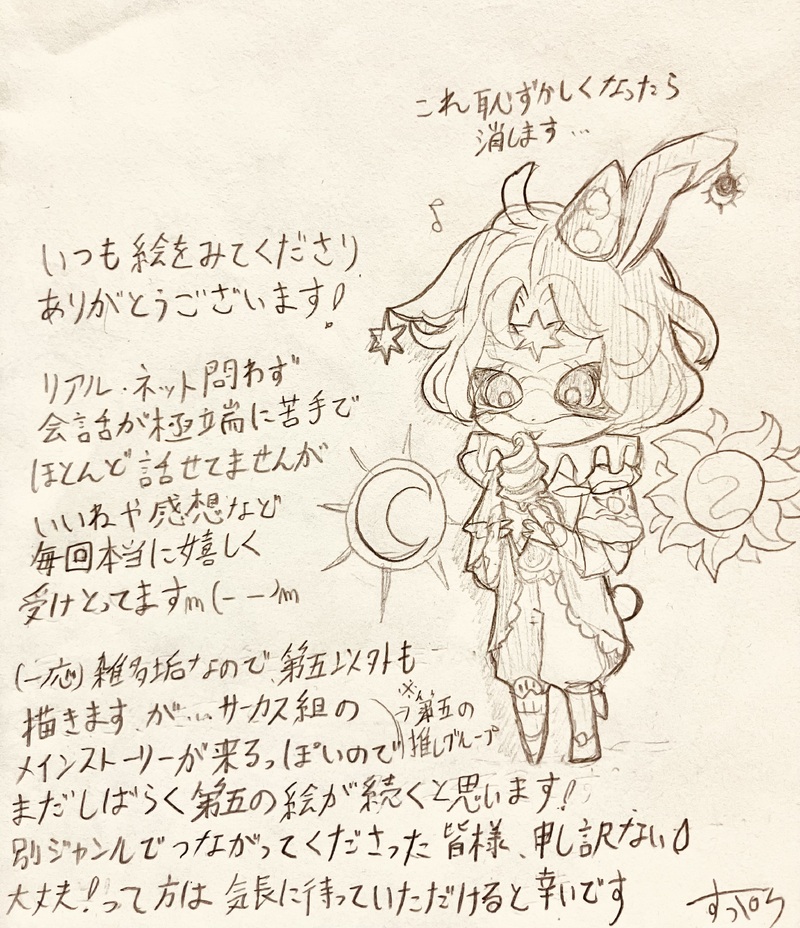 これ恥ずかしくなったら
消します…
いつも絵をみてくださり
ありがとうございます!
リアル・ネット問わず
会話が極端に苦手で
ほとんど話せてませんが
いいねや感想など
毎回本当に嬉しく
受けとってますm(--)m
(一応)雑多垢なので、第五以外も
描きますが…サーカス組の
※第五の
推しグループ
メインストーリーが来るっぽいので
まだしばらく第五の絵が続くと思います!
別ジャンルでつながってくださった皆様、申し訳ない
大丈夫!って方は気長に待っていただけると幸いです